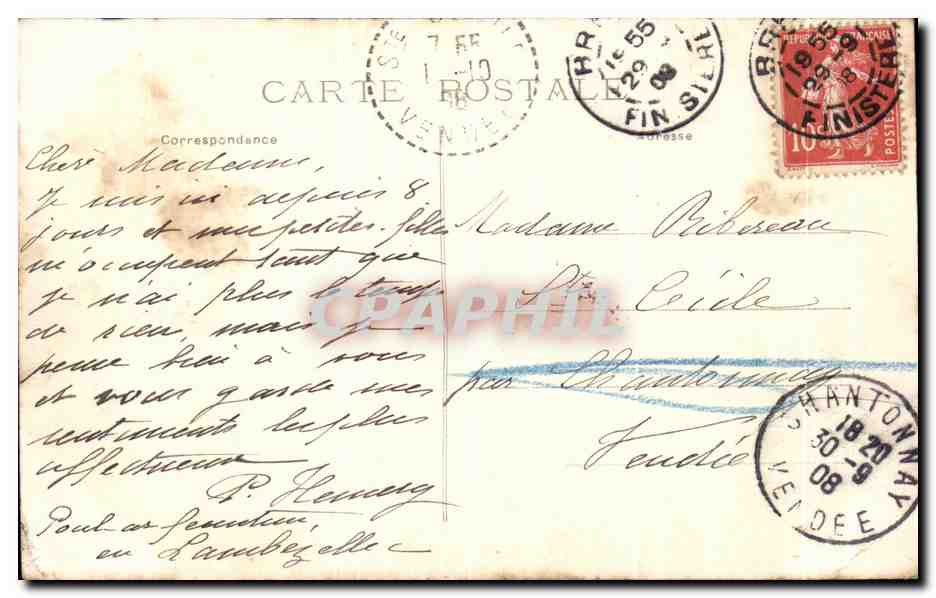 CARTE POSTALE
Correspondance
Adresse
Chère Madame,
Je suis ici depuis 8
jours et mes petites-filles
m'occupent tant que
je n'ai plus le temps
de rien, mais je
pense bien à vous
et vous garde mes
sentiments les plus
affectueux
P. Hemery
Pont ar
en Lambezellec
Madame Ribereau
Ste Cécile
par Chantonnay
Vendée
STE
7 55
1 -10
08
VENDEE
19 55
29
08
FINISTERE
19 55
29 -9
8
FINISTERE
REPUBLIQUE FRANÇAISE
10c
POSTES
CHANTONNAY
18 20
30 -9
08
VENDEE
CPAPHIL